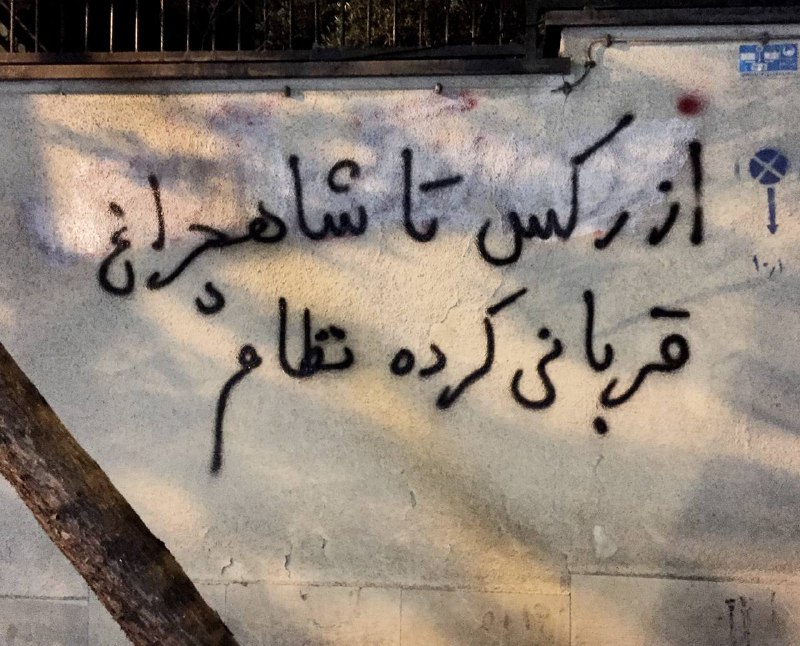 از رکس تا شاهچراغ
قربانی کرده نظام